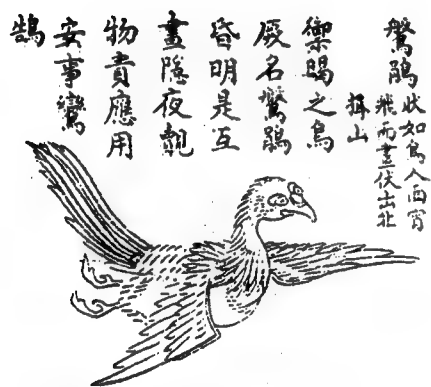 狀如烏人面宵
飛而晝伏出北
山
禦暍之鳥
厥名
昏明是互
晝隱夜覿
物貴應用
安事鸞
鵠